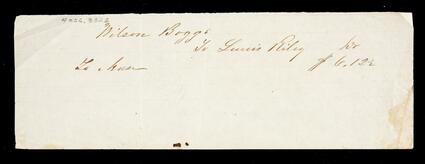 Wilson Boggs
To Lewis Riley Dr
To $ 6.12½